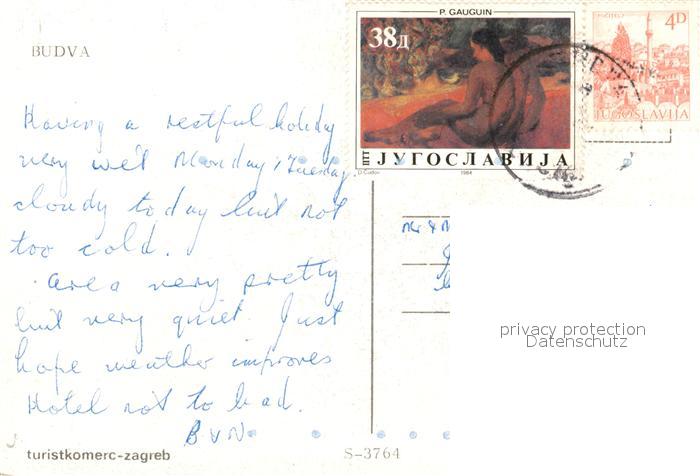 P. GAUGUIN
38Д
4D
POČITELJ
BUDVA
JUGOSLAVIJA
ПТТ ЈУГОСЛАВИЈА
D.Čudov 1984
Having a restful holiday
very wet Monday, Tuesday
cloudy today but not
too cold.
Area very pretty
but very quiet. Just
hope weather improves
Hotel not to bad.
B V N
Mr & M
privacy protection
Datenschutz
turistkomerc-zagreb
S-3764